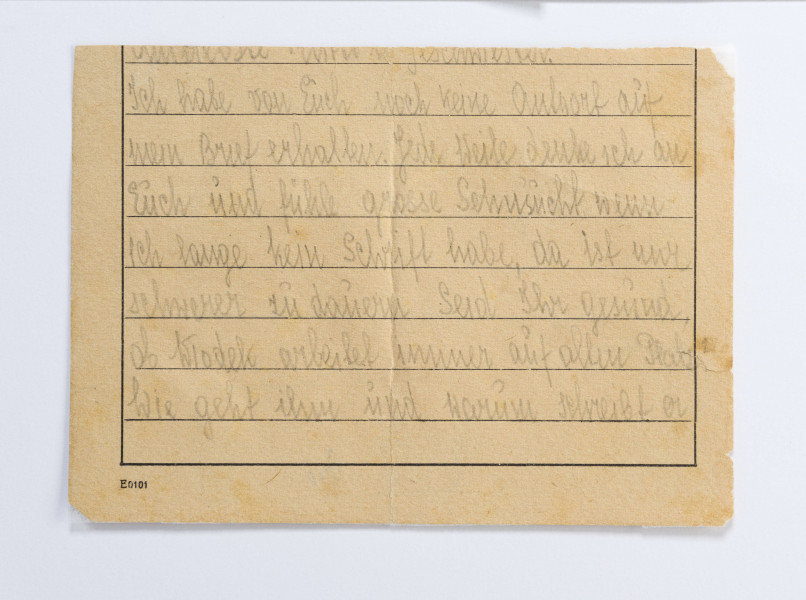 geschwister.
Ich habe von Euch noch keine Antwort auf
mein Brief erhalten. Jede Weile denke ich an
Euch und fühle grosse Sehnsucht wenn
ich lange kein Schrift habe, da ist mir
schwerer zu dauern Seid Ihr gesund,
ob Wladek arbeitet immer auf alten Platz
Wie geht ihm und warum schreibt er
E0101